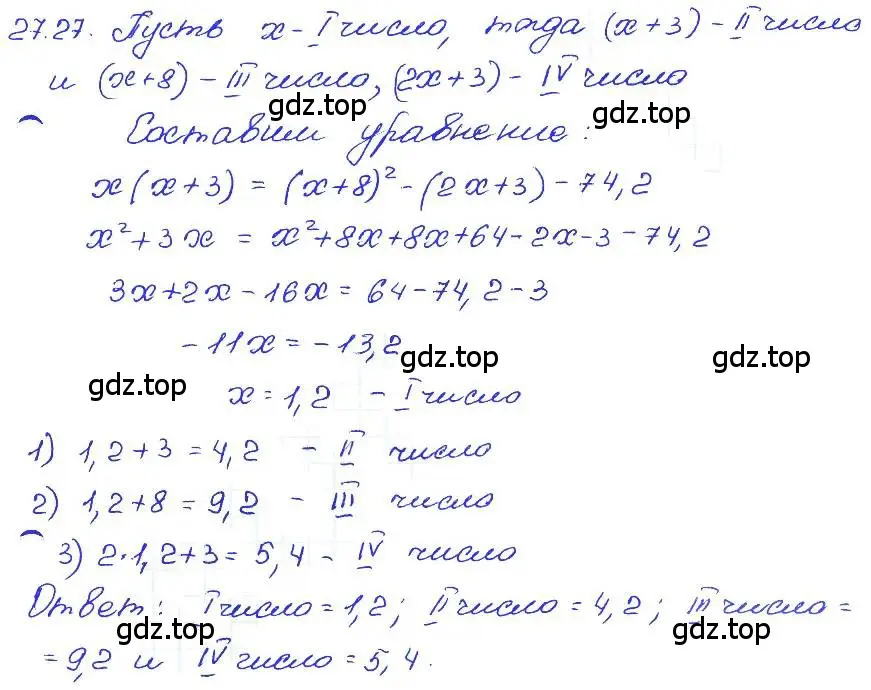 27.27. Пусть x - I число, тогда (x+3) - II число
и (x+8) - III число, (2x+3) - IV число
gdz.top
gdz.top
Составим уравнение:
x(x+3) = (x+8)² - (2x+3) - 74,2
x² + 3x = x² + 8x + 8x + 64 - 2x - 3 - 74,2
3x + 2x - 16x = 64 - 74,2 - 3
-11x = -13,2
gdz.top
gdz.top
gdz.top
x = 1,2 - I число
1) 1,2 + 3 = 4,2 - II число
2) 1,2 + 8 = 9,2 - III число
3) 2·1,2 + 3 = 5,4 - IV число
Ответ: I число = 1,2; II число = 4,2; III число =
gdz.top
gdz.top
= 9,2 и IV число = 5,4.